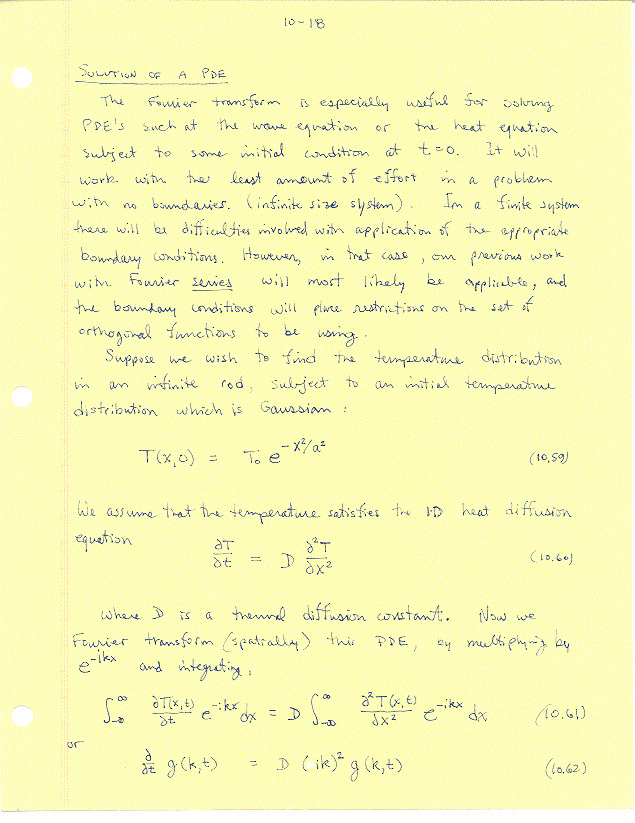 10-18
SOLUTION OF A PDE
The Fourier transform is especially useful for solving
PDE's such at the wave equation or the heat equation
subject to some initial condition at t=0. It will
work with the least amount of effort in a problem
with no boundaries. (infinite size system). In a finite system
there will be difficulties involved with application of the appropriate
boundary conditions. However, in that case, our previous work
with Fourier series will most likely be applicable, and
the boundary conditions will place restrictions on the set of
orthogonal functions to be using.
Suppose we wish to find the temperature distribution
in an infinite rod, subject to an initial temperature
distribution which is Gaussian:
T(x,0) = T₀ e^{-x²/a²} (10.59)
We assume that the temperature satisfies the 1-D heat diffusion
equation
∂T/∂t = D ∂²T/∂x² (10.60)
where D is a thermal diffusion constant. Now we
Fourier transform (spatially) this PDE, by multiplying by
e^{-ikx} and integrating,
∫_{-∞}^{∞} ∂T(x,t)/∂t e^{-ikx} dx = D ∫_{-∞}^{∞} ∂²T(x,t)/∂x² e^{-ikx} dx (10.61)
or
∂/∂t g(k,t) = D (ik)² g(k,t) (10.62)